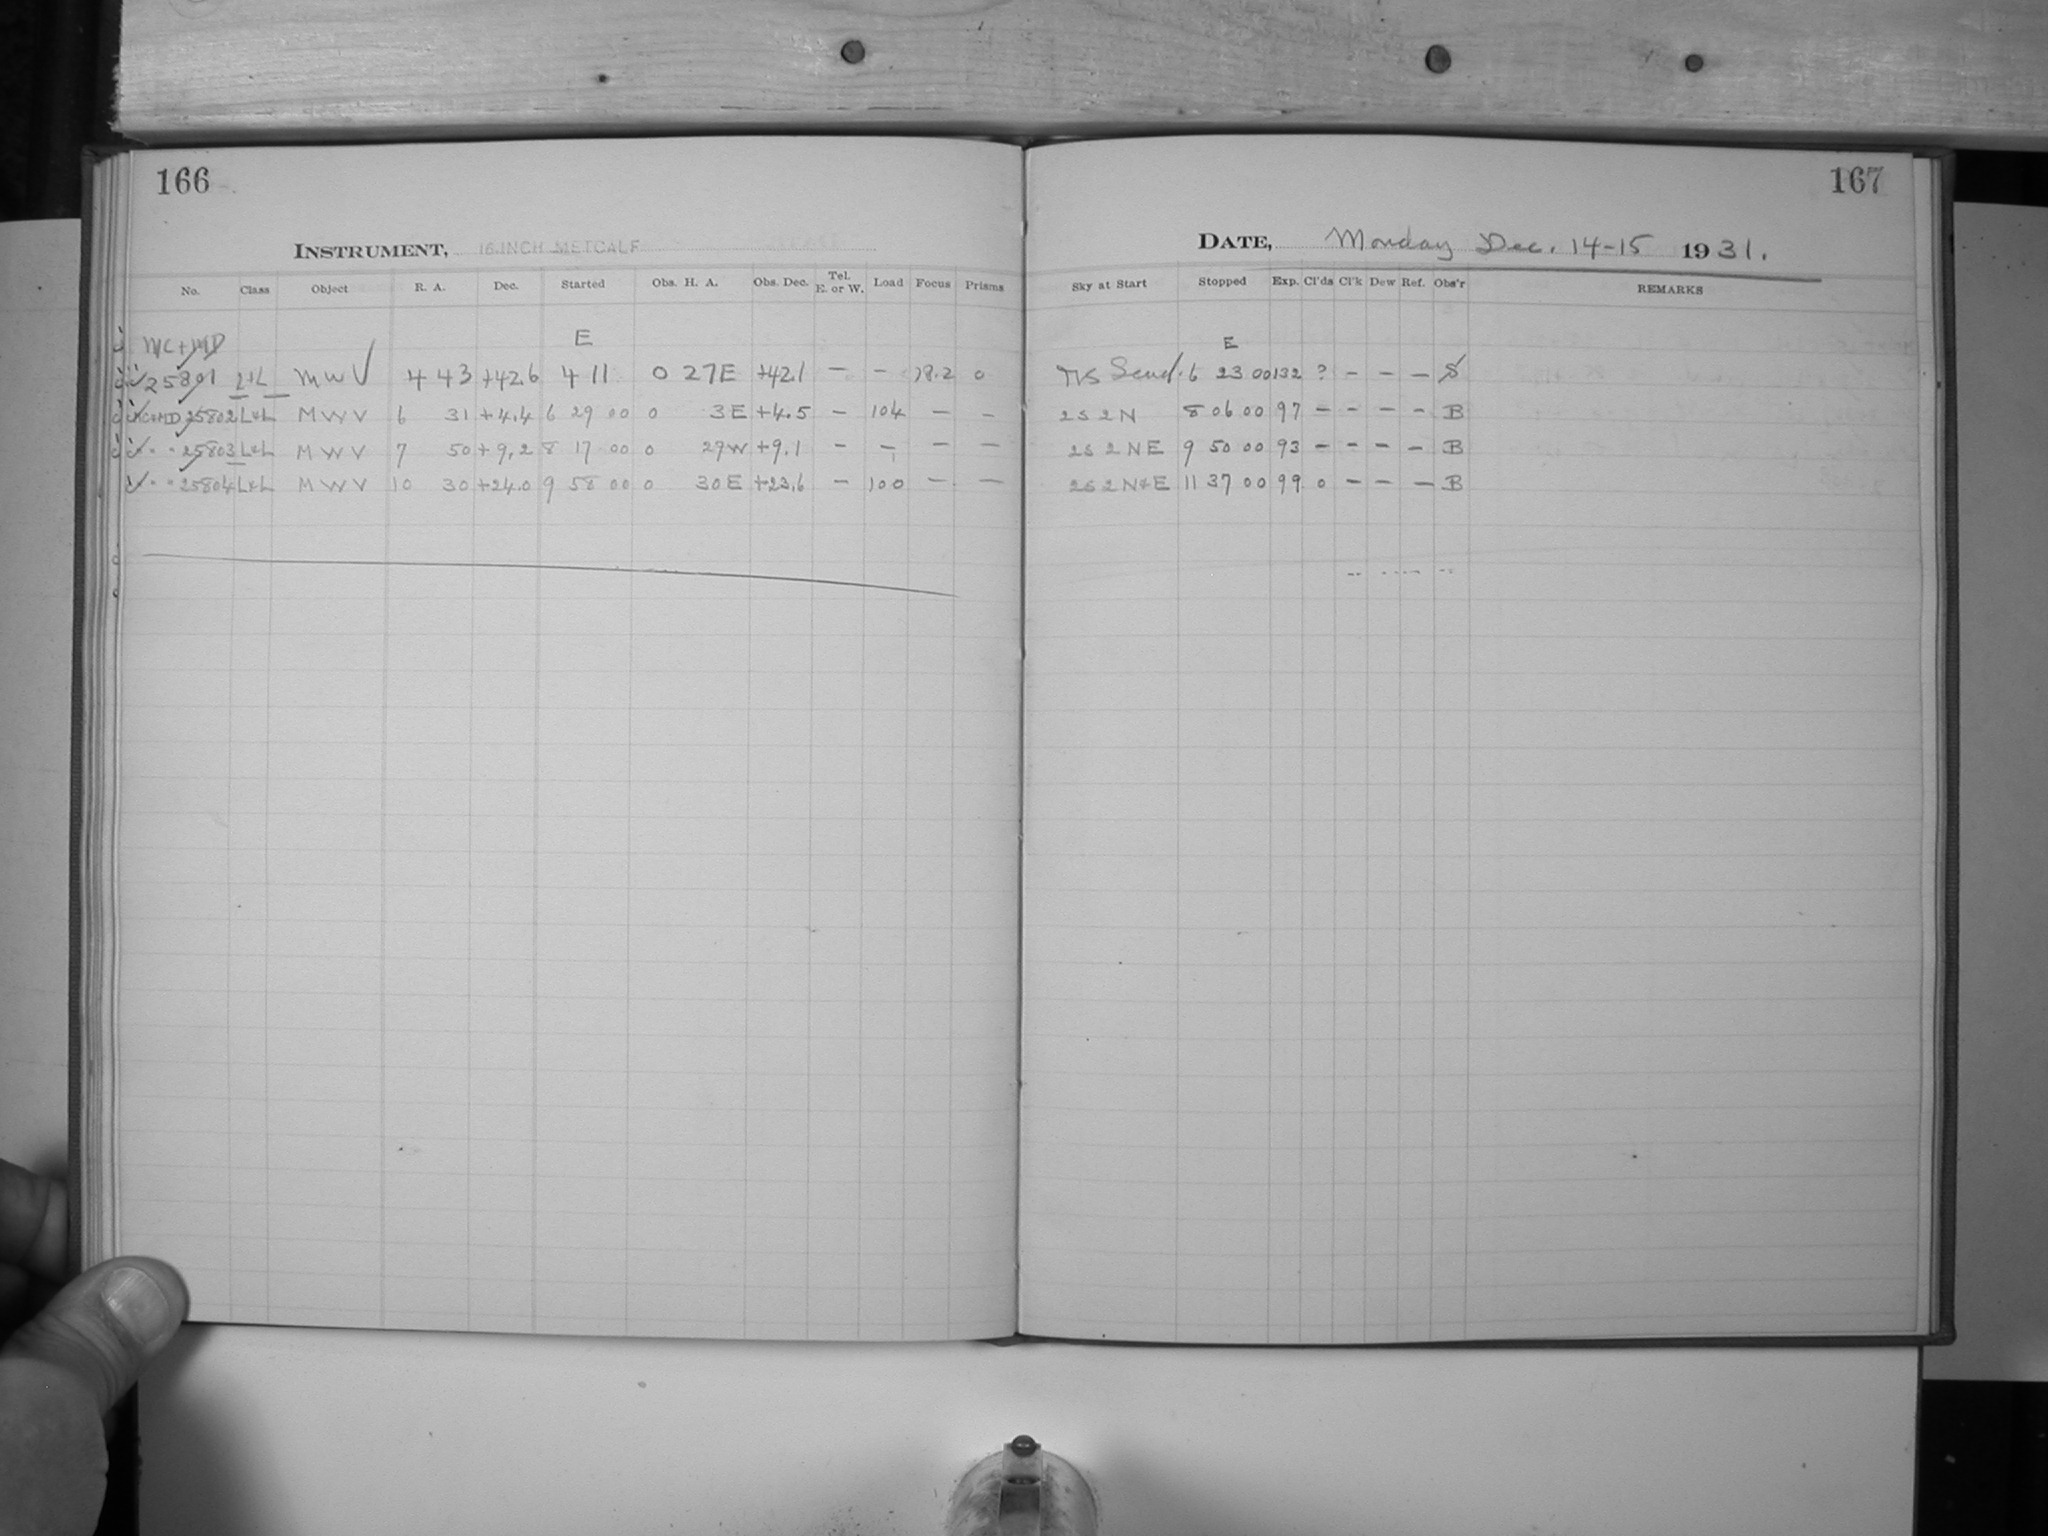 166
INSTRUMENT, 16-INCH METCALF
No. Class Object R. A. Dec. Started Obs. H. A. Obs. Dec. Tel. E. or W. Load Focus Prisms
MC+MD E
25801 L+L MWV 4 43 +42.6 4 11 0 27E +42.1 — — 78.2 0
MC+MD 25802 L+L MWV 6 31 +4.4 6 29 00 0 3E +4.5 — 104 — —
" " 25803 L+L MWV 7 50 +9.2 8 17 00 0 27W +9.1 — — — —
" " 25804 L+L MWV 10 30 +24.0 9 58 00 0 30E +23.6 — 100 — —
167
DATE, Monday Dec. 14-15 1931.
Sky at Start Stopped Exp. Cl'ds Cl'k Dew Ref. Obs'r REMARKS
E
6 23 00 132 ? — — — S
2S 2N 8 06 00 97 — — — — B
2S 2NE 9 50 00 93 — — — — B
2S 2N+E 11 37 00 99 0 — — — B